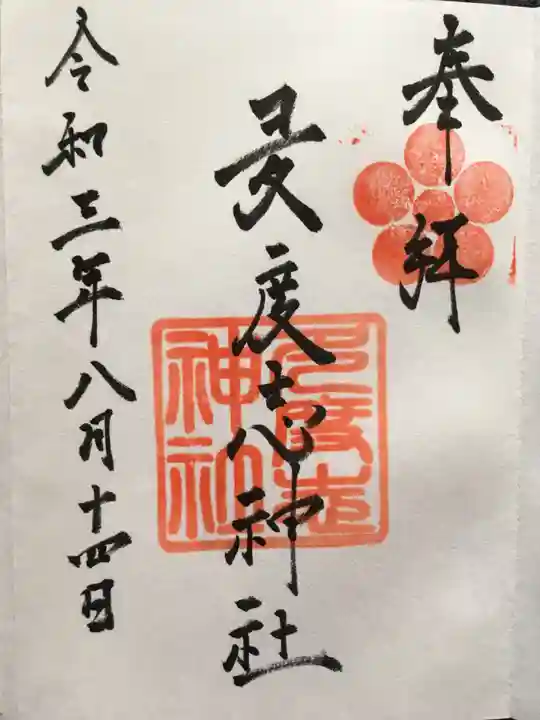 奉拝
夛度志神社
多度志
神社
令和三年八月十四日